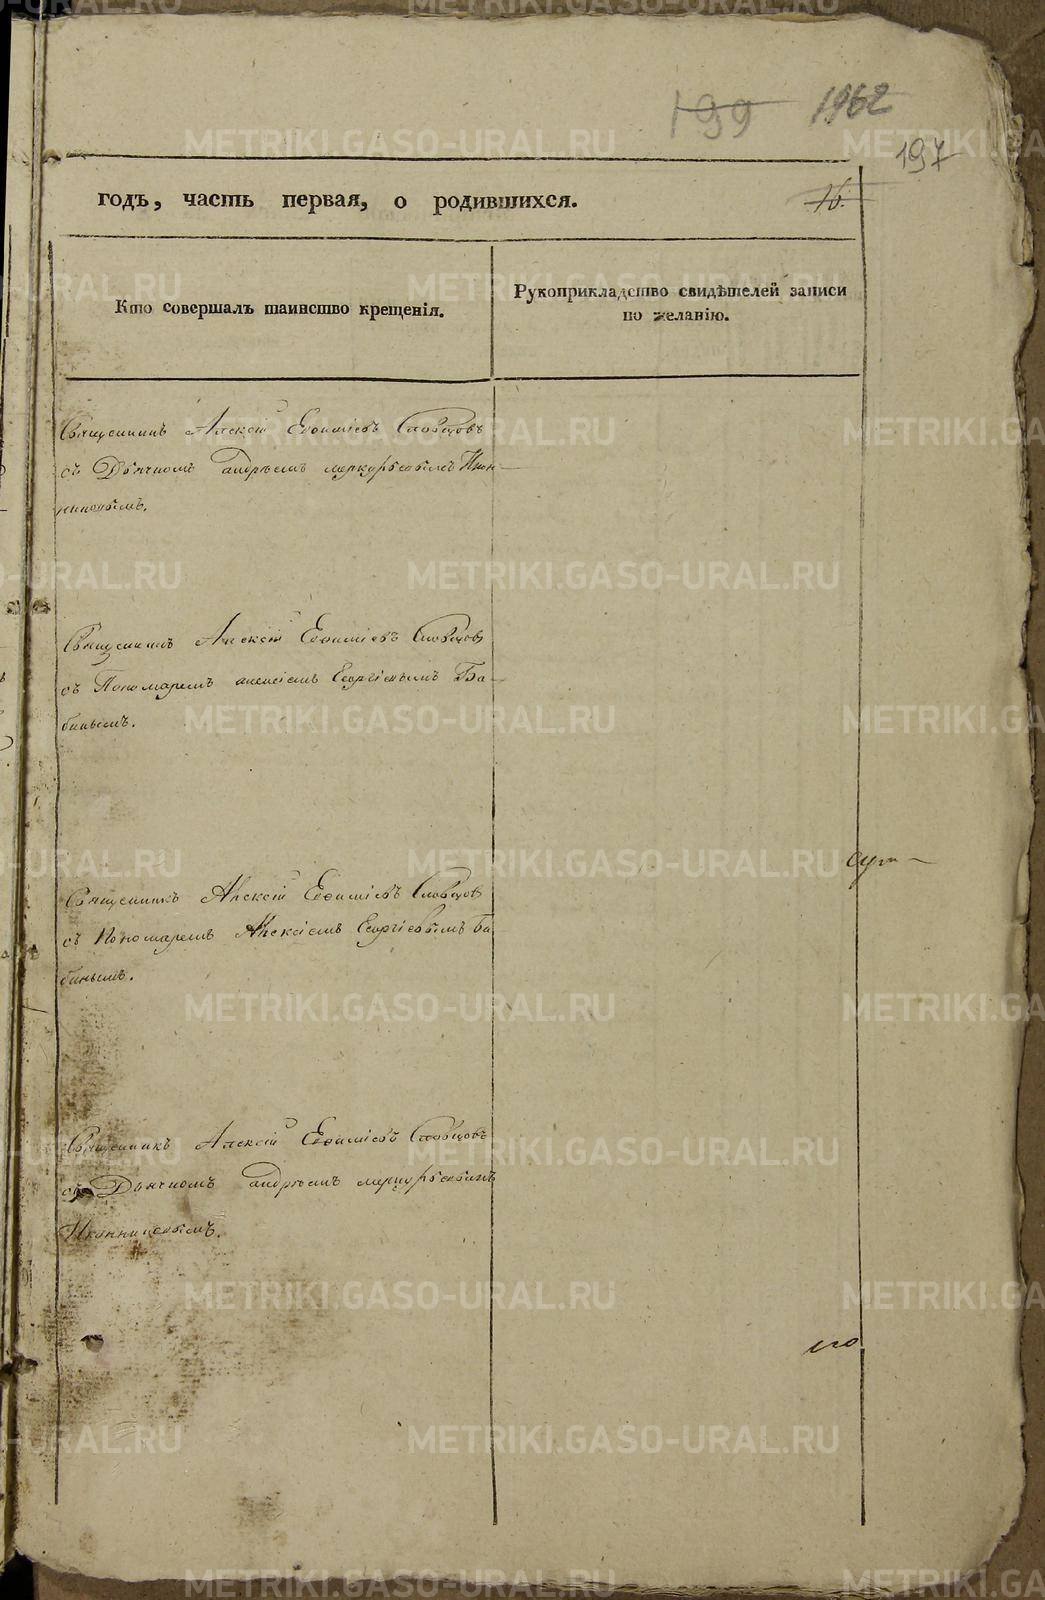 199 1962
197
годъ, часть первая, о родившихся. 16.
Кто совершалъ таинство крещенія.
Рукоприкладство свидѣтелей записи
по желанію.
Священникъ Алексій Евѳиміевъ Словцовъ
съ Дьячкомъ андрѣемъ меркурьевымъ Икон-
никовымъ.
Священникъ Алексій Евѳиміевъ Словцовъ
съ Пономаремъ алексіемъ Георгіевымъ Ба-
бинымъ.
Священникъ Алексій Евѳиміевъ Словцовъ
съ Пономаремъ Алексіемъ Георгіевымъ Ба
бинымъ.
Священникъ Алексій Евѳиміевъ Словцовъ
съ Дьячкомъ андрѣемъ меркурьевымъ
Иконниковымъ.
METRIKI.GASO-URAL.RU